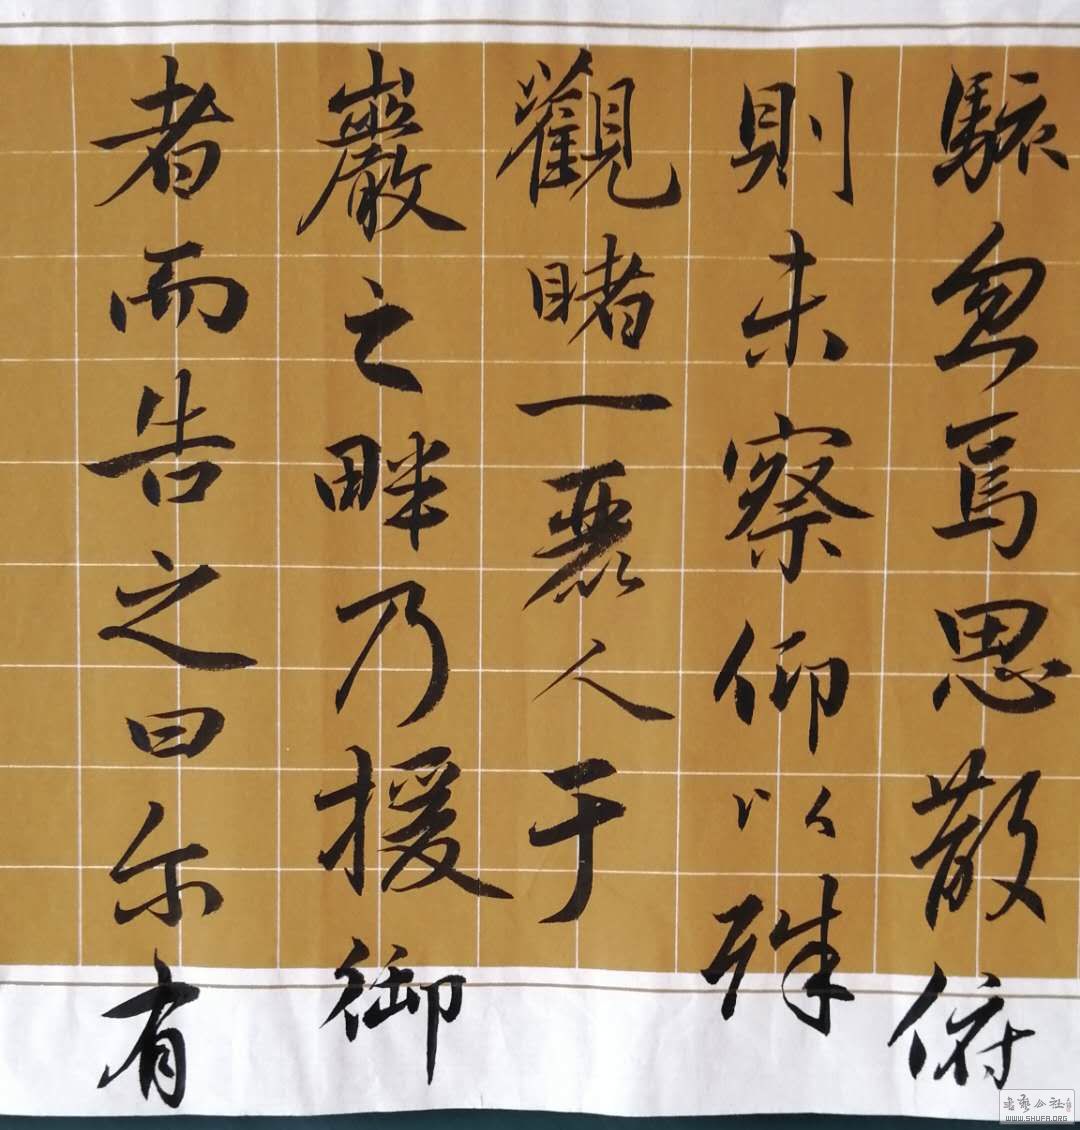 駭忽焉思散俯
則未察仰以殊
觀睹一麗人于
巖之畔乃援御
者而告之曰尔有
書藝公社
WWW.SHUFA.ORG